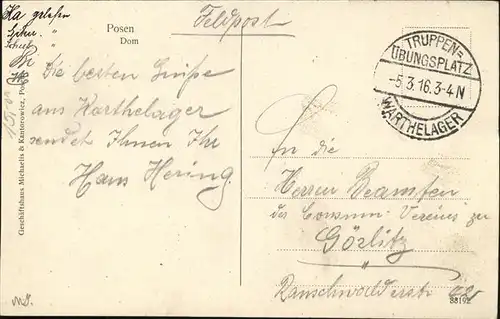 Ha gelesen
"
"
Posen
Dom
Feldpost
TRUPPEN=
ÜBUNGSPLATZ
-5.3.16.3-4N
WARTHELAGER
Die besten Grüße
aus Warthelager
sendet Ihnen Ihr
Hans Hering.
An die
Herren Beamten
des Consum-Vereins zu
Görlitz
"
Rauschwalderstr
Geschäftshaus Michaelis & Kantorowicz, Posen
88192